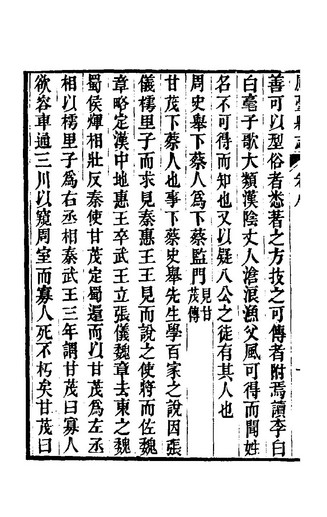 善可以型俗者悉著之方技之可傳者附焉讀李白
白毫子歌大類漢陰丈人滄浪漁父風可得而聞姓
名不可得而知也又以疑八公之徒有其人也
周史舉下蔡人爲下蔡監門見甘茂傳
甘茂下蔡人也事下蔡史舉先生學百家之說因張
儀樗里子而求見秦惠王王見而說之使將而佐魏
章略定漢中地惠王卒武王立張儀魏章去東之魏
蜀侯煇相壯反秦使甘茂定蜀還而以甘茂爲左丞
相以樗里子爲右丞相秦武王三年謂甘茂曰寡人
欲容車通三川以窺周室而寡人死不朽矣甘茂曰